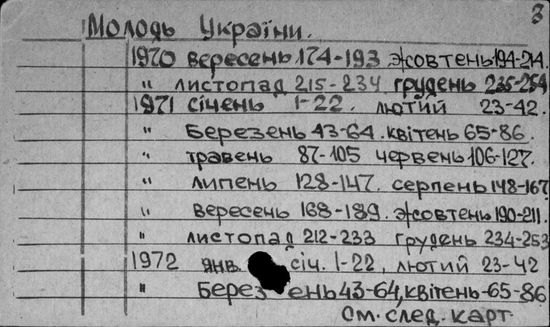 3
Молодь України.
1970 вересень 174-193 жовтень 194-214.
" листопад 215-234 грудень 235-254
1971 січень 1-22. лютий 23-42.
" Березень 43-64. квітень 65-86.
" травень 87-105 червень 106-127.
" липень 128-147. серпень 148-167
" вересень 168-189. жовтень 190-211.
" листопад 212-233 грудень 234-253
1972 янв. січ. 1-22, лютий 23-42
" Березень 43-64, квітень 65-86
См. след. карт